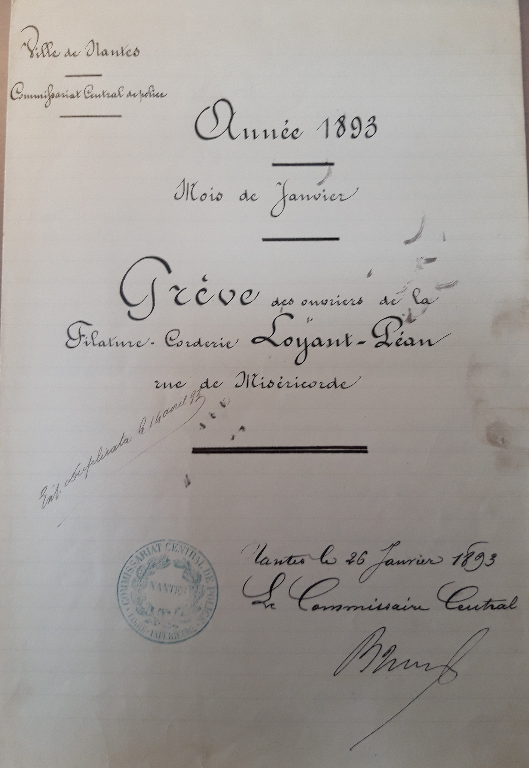 Ville de Nantes
Commissariat Central de police
Année 1893
Mois de Janvier
Grève des ouvriers de la
Filature-Corderie Loyant-Péan
rue de Miséricorde
Duplicata le 14 avril 93
COMMISSARIAT CENTRAL DE POLICE
NANTES
LOIRE-INFÉRIEURE
Nantes le 26 Janvier 1893
Le Commissaire Central